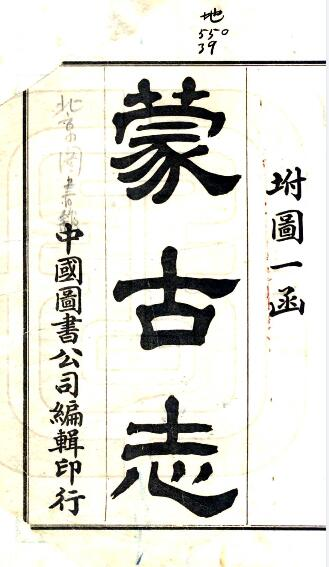 地
550
39
坿圖一函
蒙古志
中國圖書公司編輯印行
北京图书馆